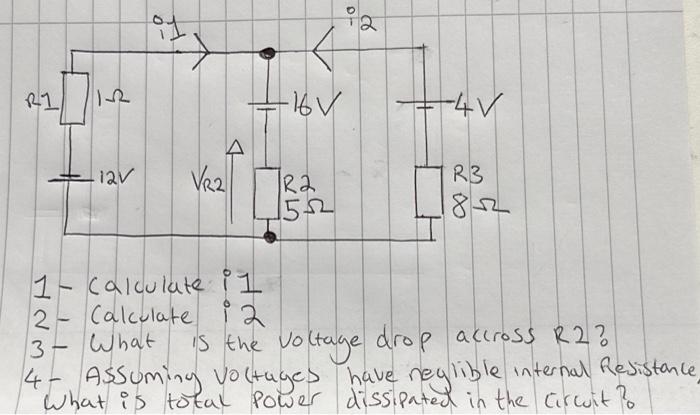 i1 i2
R1 1Ω 16V 4V
12V VR2 R2 5Ω R3 8Ω
1- Calculate i1
2- Calculate i2
3- What is the voltage drop accross R2?
4- Assuming voltages have neglible internal Resistance
What is total power dissipated in the circuit?